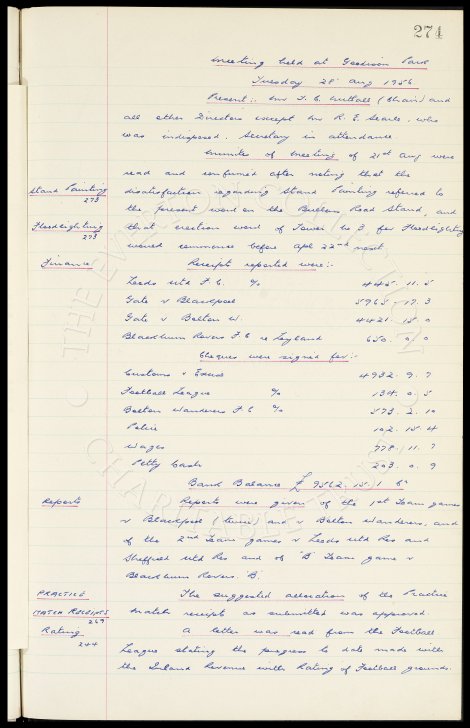 274
Meeting held at Goodison Park
Tuesday 28th Aug 1956.
Present:- Mr T. C. Nuttall (Chair) and
all other Directors except Mr R. E. Searle, who
was indisposed. Secretary in attendance
Minutes of Meeting of 21st Aug were
read and confirmed after noting that the
Stand Painting
273
dissatisfaction regarding Stand Painting referred to
the present work on the Bullens Road Stand, and
Floodlighting
273
that erection work of Tower No 3 for Floodlighting
would commence before Sept 22nd next
Finance
Receipts reported were:-
Leeds Utd F.C. % 445. 11. 5
Gate v Blackpool 5965. 17. 3
Gate v Bolton W. 4421. 15. 0
Blackburn Rovers F C re Leyland 650. 0. 0
Cheques were signed for:-
Customs & Excise 4932. 9. 7
Football League % 134. 0. 5
Bolton Wanderers F C % 573. 2. 10
Police 102. 15. 4
Wages 778. 11. 7
Petty Cash 203. 0. 9
Bank Balance £ 9562. 15. 1
Reports
Reports were given of the 1st Team games
v Blackpool (twice) and v Bolton Wanderers, and
of the 2nd Team games v Leeds Utd Res and
Sheffield Utd Res and of 'B' Team game v
Blackburn Rovers 'B'.
PRACTICE
MATCH RECEIPTS
269
The suggested allocation of the Practice
Match receipts as submitted was approved
Rating
244
A letter was read from the Football
League stating the progress to date made with
the Inland Revenue with Rating of Football grounds.
THE EVERTON COLLECTION
CHARITABLE TRUST